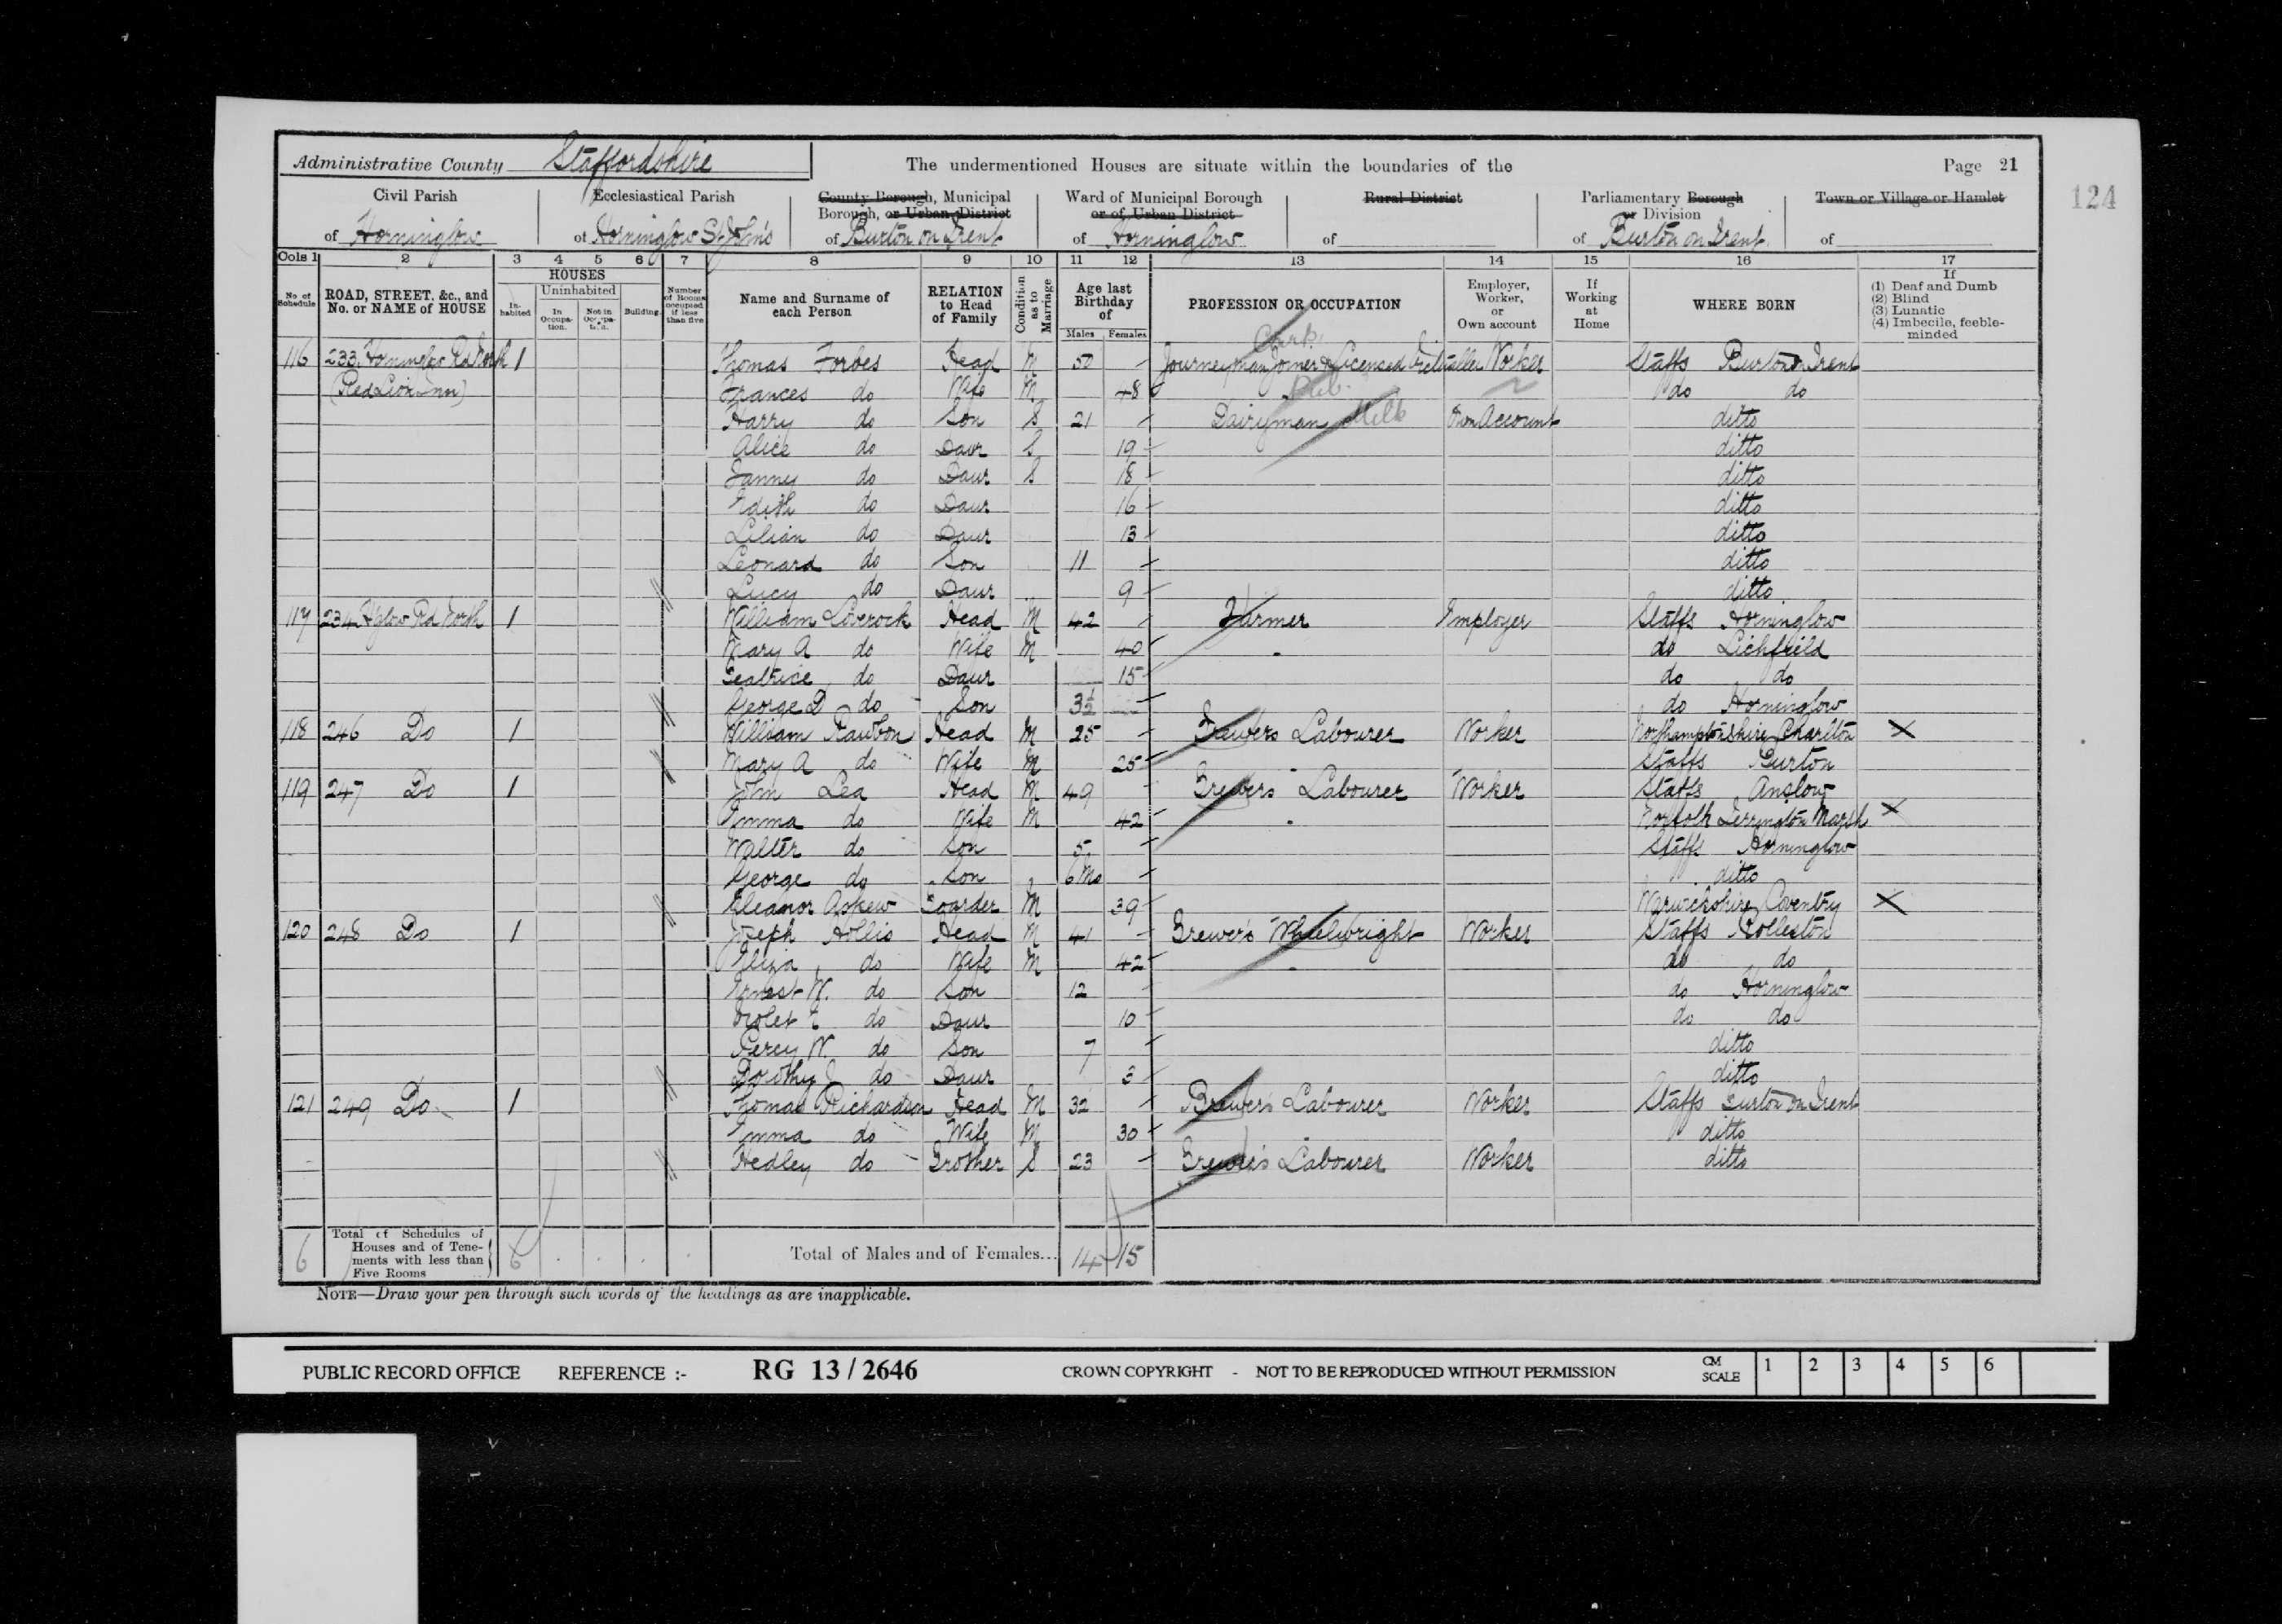 Administrative County Staffordshire The undermentioned Houses are situate within the boundaries of the Page 21
124
Civil Parish of Horninglow
Ecclesiastical Parish of Horninglow St John's
County Borough, Municipal Borough, or Urban District of Burton on Trent
Ward of Municipal Borough or of Urban District of Horninglow
Rural District of
Parliamentary Borough or Division of Burton on Trent
Town or Village or Hamlet of
Cols 1 2 3 4 5 6 7 8 9 10 11 12 13 14 15 16 17
No of Schedule
ROAD, STREET, &c., and No. or NAME of HOUSE
HOUSES
Inhabited
Uninhabited
In Occupation.
Not in Occupation.
Building
Number of Rooms occupied if less than five
Name and Surname of each Person
RELATION to Head of Family
Condition as to Marriage
Age last Birthday of
Males Females
PROFESSION OR OCCUPATION
Employer, Worker, or Own account
If Working at Home
WHERE BORN
If (1) Deaf and Dumb (2) Blind (3) Lunatic (4) Imbecile, feeble-minded
116 233 Horninglow Rd North 1 Thomas Forbes Head M 50 - Journeyman Joiner & Licensed Victualler Worker Staffs Burton on Trent
(Red Lion Inn) Frances do Wife M 48 do do
Harry do Son S 21 - Dairyman Milk Own Account ditto
Alice do Daur S 19 - ditto
Fanny do Daur S 18 - ditto
Edith do Daur 16 - ditto
Lilian do Daur 13 - ditto
Leonard do Son 11 - ditto
Lucy do Daur 9 - ditto
117 234 H'glow Rd North 1 William Loverock Head M 42 - Farmer Employer Staffs Horninglow
Mary A do Wife M 40 - do Lichfield
Beatrice do Daur 15 - do do
George D do Son 3½ - do Horninglow
118 246 Do 1 William Rawbon Head M 25 - Brewers Labourer Worker Northamptonshire Charlton X
Mary A do Wife M 25 - Staffs Burton
119 247 Do 1 John Lea Head M 49 - Brewers Labourer Worker Staffs Anslow
Emma do Wife M 42 - Norfolk Terrington Marsh X
Walter do Son 5 - Staffs Horninglow
George do Son 6 Mo - ditto
Eleanor Askew Boarder M 39 - Warwickshire Coventry X
120 248 Do 1 Joseph Hollis Head M 41 - Brewer's Wheelwright Worker Staffs Rolleston
Eliza do Wife M 42 - do do
Ernest W. do Son 12 - do Horninglow
Violet E do Daur 10 - do do
Percy W. do Son 7 - ditto
Dorothy J do Daur 3 - ditto
121 249 Do 1 Thomas Richardson Head M 32 - Brewer's Labourer Worker Staffs Burton on Trent
Emma do Wife M 30 - ditto
Hedley do Brother S 23 - Brewer's Labourer Worker ditto
6 Total of Schedules of Houses and of Tenements with less than Five Rooms 6 Total of Males and of Females... 14 15
NOTE—Draw your pen through such words of the headings as are inapplicable.
PUBLIC RECORD OFFICE REFERENCE :- RG 13 / 2646 CROWN COPYRIGHT - NOT TO BE REPRODUCED WITHOUT PERMISSION CM SCALE 1 2 3 4 5 6